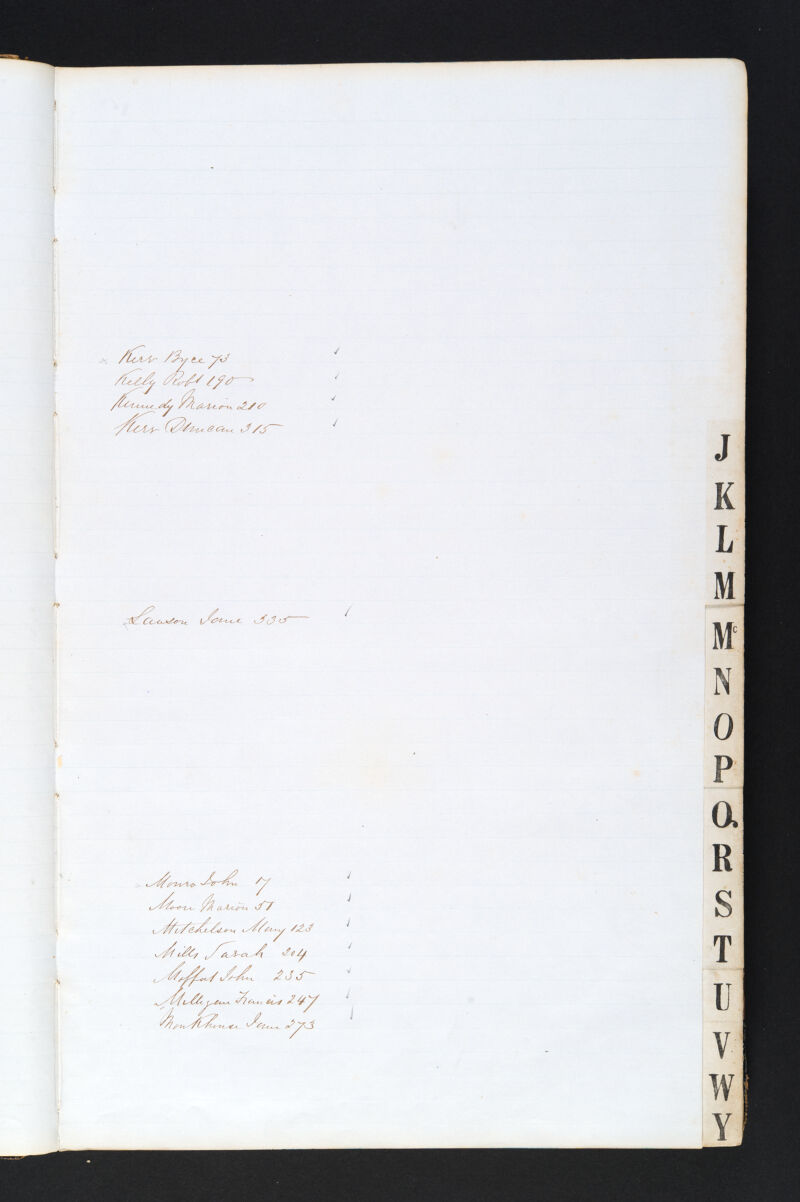 × Kerr Bryce 73
Kelly Robt 190
Kennedy Marion 210
Kerr Duncan 315
Lawson Jane 335
Monro John 17
Moore Marion 51
Mitchelson Mary 123
Mills Sarah 204
Moffat John 235
Milligan Francis 247
Monkhouse Jane 273
J
K
L
M
Mc
N
O
P
Q
R
S
T
U
V
W
Y